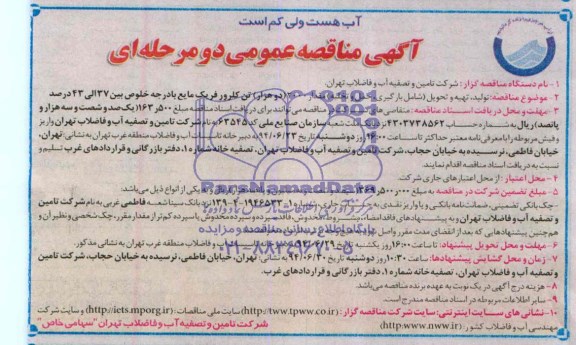 آب هست ولی کم است
آگهی مناقصه عمومی دو مرحله‌ای
۱- نام دستگاه مناقصه گزار: شرکت تامین و تصفیه آب و فاضلاب تهران.
۲- موضوع مناقصه: تولید، تهیه و تحویل (شامل بارگیری، (دو هزار) تن کلرور فریک مایع با درجه خلوص بین ۳۷ الی ۴۳ درصد
۳- مهلت و محل دریافت اسناد مناقصه: مناقصه می توانند برای دریافت اسناد مناقصه مبلغ ۱۶۳/۵۰۰ (یکصد و شصت و سه هزار و
پانصد) ریال به شماره حساب ۴۳۰۳۷۳۸۵۶۲ بانک ملت شعبه سازمان صنایع ملی کد ۶۳۵۴۵ به نام شرکت تامین و تصفیه آب و فاضلاب تهران واریز
و فیش مربوطه را با معرفی نامه معتبر حداکثر تا ساعت ۱۴:۰۰ روز دوشنبه تاریخ ۹۴/۰۶/۲۳ به دبیرخانه تاسیسات آب و فاضلاب منطقه غرب تهران به نشانی: تهران،
خیابان فاطمی، نرسیده به خیابان حجاب، شرکت تامین و تصفیه آب و فاضلاب تهران، تصفیه خانه شماره ۱، دفتر بازرگانی و قراردادهای غرب تسلیم و
نسبت به دریافت اسناد مناقصه اقدام نمایند.
۴- محل اعتبار: از محل اعتبارهای جاری شرکت.
۵- مبلغ تضمین شرکت در مناقصه: به مبلغ یکی از انواع ذیل می‌باشد:
چک بانکی تضمینی، ضمانت‌نامه بانکی و یا واریز نقدی به جاری نزد بانک سینا شعبه فاطمی غربی به نام شرکت تامین
و تصفیه آب و فاضلاب تهران و به پیشنهادهای فاقد امضاء، مشروط، مخدوش، فاقد سپرده و سپرده مخدوش یا سپرده کمتر از مقدار مقرر، چک شخصی و نظیر آن و
هم چنین پیشنهادهایی که بعد از انقضای مدت مقرر واصل
۶- مهلت و محل تحویل پیشنهادها: تا ساعت ۱۶:۰۰ روز یکشنبه آب و فاضلاب منطقه غرب تهران به نشانی مذکور.
۷- زمان و محل گشایش پیشنهادها: ساعت ۱۰:۳۰ روز دوشنبه تاریخ ۹۴/۰۶/۳۰ به نشانی: تهران، خیابان فاطمی، نرسیده به خیابان حجاب، شرکت تامین و
تصفیه آب و فاضلاب تهران، تصفیه خانه شماره ۱، دفتر بازرگانی و قراردادهای غرب.
۸- هزینه درج آگهی در یک نوبت به عهده برنده مناقصه می‌باشد.
۹- سایر اطلاعات مربوطه در اسناد مناقصه مندرج است.
۱۰- نشانی های سایت اینترنتی: سایت شرکت مناقصه گزار: (http://www.tpww.co.ir) سایت ملی مناقصات: (http://iets.mporg.ir) و سایت شرکت
مهندسی آب و فاضلاب کشور: (http:www.nww.ir)
شرکت تامین و تصفیه آب و فاضلاب تهران "سهامی خاص"
ParsNamadData
پایگاه اطلاع رسانی مناقصه و مزایده
۰۲۱-۸۸۳۴۹۶۷۰-۵